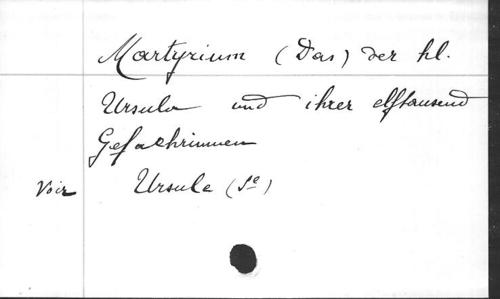 Martyrium (Das) der hl.
Ursula und ihrer elftausend
Gefaehrinnen
Voir Ursule (Ste)